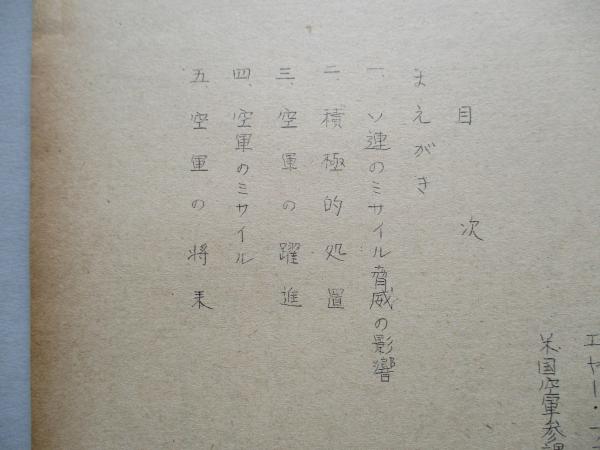 エヤー・フ
米国空軍参謀
目次
まえがき
一、ソ連のミサイル脅威の影響
二、積極的処置
三、空軍の躍進
四、空軍のミサイル
五 空軍の将来